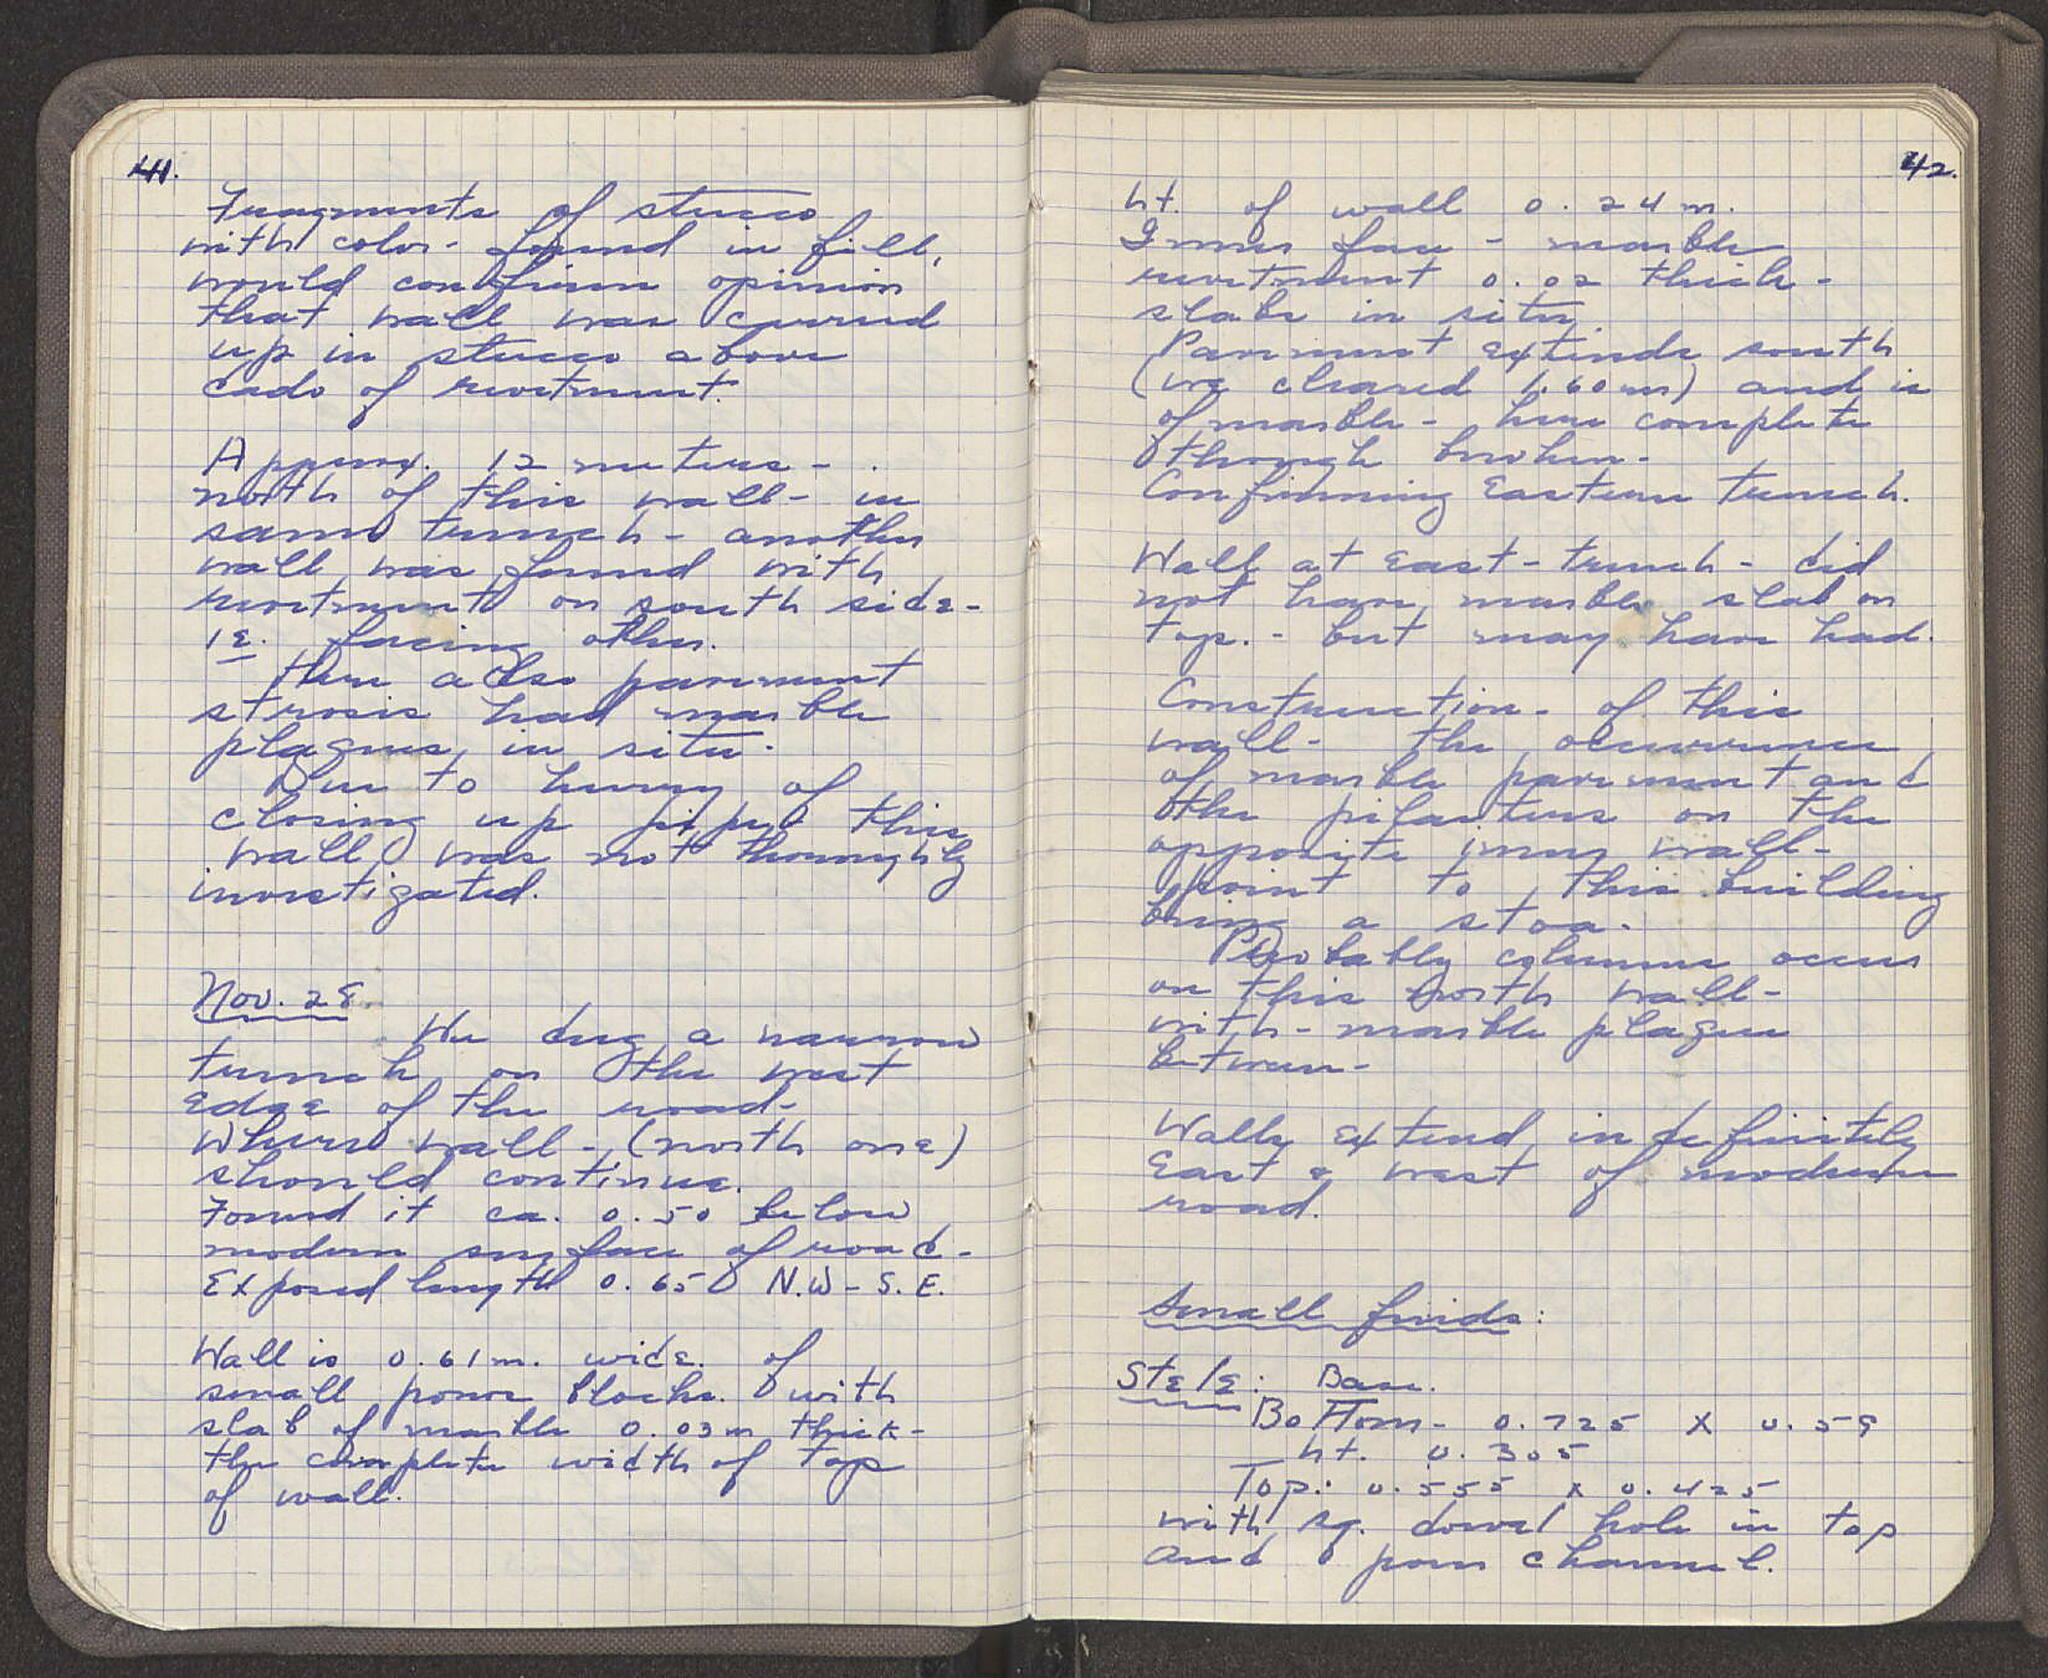 41.
Fragments of stucco
with color - found in fill,
would confirm opinion
that wall was carried
up in stucco above
dado of revetment.
Approx. 12 meters -
north of this wall - in
same trench - another
wall was found with
revetment on south side -
ie. facing other.
Here also pavement
strosis had marble
plaques in situ -
Due to hurry of
closing up pipe this
wall was not thoroughly
investigated.
Nov. 28.
We dug a narrow
trench on the west
edge of the road -
where wall - (north one)
should continue.
Found it ca. 0.50 below
modern surface of road -
Exposed length 0.65 N.W - S.E.
Wall is 0.61 m. wide. of
small poros blocks. with
slab of marble 0.03 m thick -
the complete width of top
of wall.
42.
ht. of wall 0.24 m.
Inner face - marble
revetment 0.02 thick -
slabs in situ.
Pavement extends south
(we cleared 1.60 m) and is
of marble - here complete
though broken -
Confirming Eastern trench.
Wall at East - trench - did
not have marble slab on
top. - but may have had.
Construction - of this
wall - the occurrence
of marble pavement and
the pilasters on the
opposite inner wall -
point to this building
being a stoa -
Probably columns occur
on this north wall -
with - marble plaques
between -
Walls extend indefinitely
East & west of modern
road.
Small finds:
Stele: Base.
Bottom - 0.725 x 0.59
ht. 0.305
Top: 0.555 x 0.425
with sq. dowel hole in top
and pour channel.